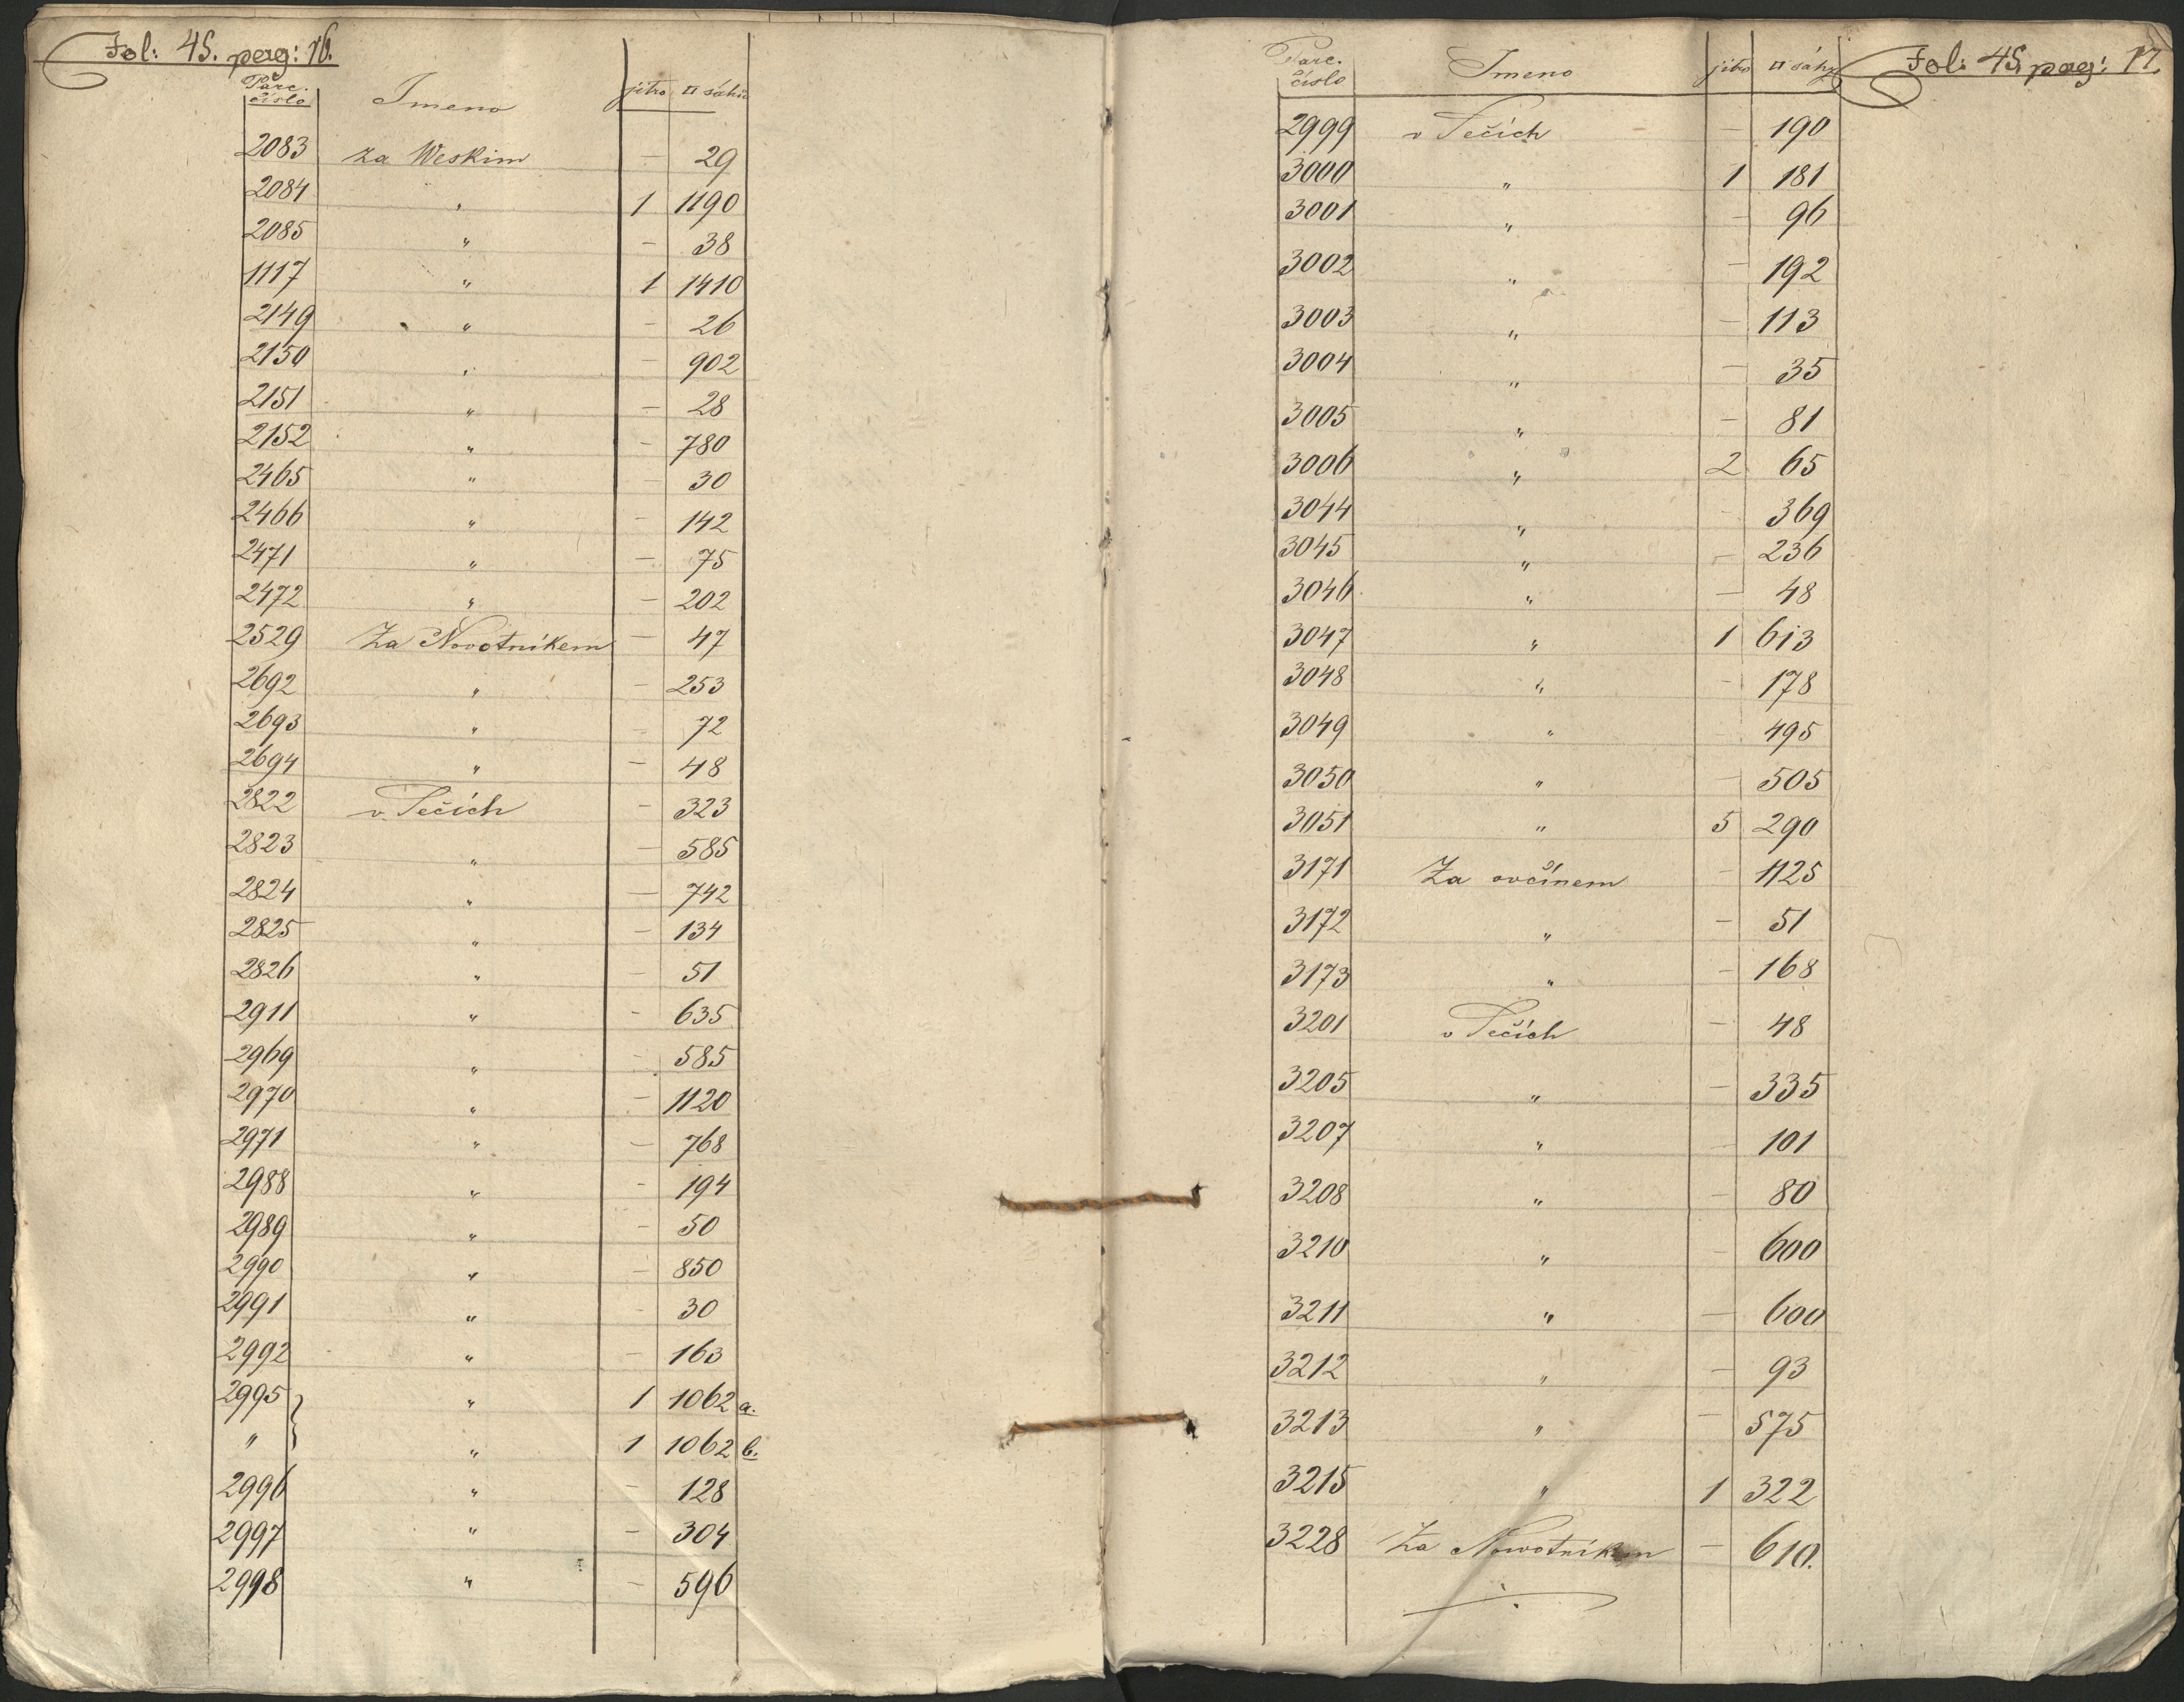 Fol: 45. pag: 16.
Parc. číslo Jmeno jitro □ sáhů
2083 za Weskim — 29
2084 " 1 1190
2085 " — 38
1117 " 1 1410
2149 " — 26
2150 " — 902
2151 " — 28
2152 " — 780
2465 " — 30
2466 " — 142
2471 " — 75
2472 " — 202
2529 Za Novotníkem — 47
2692 " — 253
2693 " — 72
2694 " — 48
2822 v Pečich — 323
2823 " — 585
2824 " — 742
2825 " — 134
2826 " — 51
2911 " — 635
2969 " — 585
2970 " — 1120
2971 " — 768
2988 " — 194
2989 " — 50
2990 " — 850
2991 " — 30
2992 " — 163
2995 " 1 1062 a.
" " 1 1062 b.
2996 " — 128
2997 " — 304
2998 " — 596
Fol: 45 pag: 17.
Parc. číslo Jmeno jitro □ sáhy
2999 v Pečich — 190
3000 " 1 181
3001 " — 96
3002 " — 192
3003 " — 113
3004 " — 35
3005 " — 81
3006 " 2 65
3044 " — 369
3045 " — 236
3046 " — 48
3047 " 1 613
3048 " — 178
3049 " 495
3050 " — 505
3051 " 5 290
3171 Za ovčínem — 1125
3172 " — 51
3173 " — 168
3201 v Pečich — 48
3205 " — 335
3207 " — 101
3208 " — 80
3210 " — 600
3211 " — 600
3212 " — 93
3213 " — 575
3215 " 1 322
3228 Za Nowotníkem — 610.